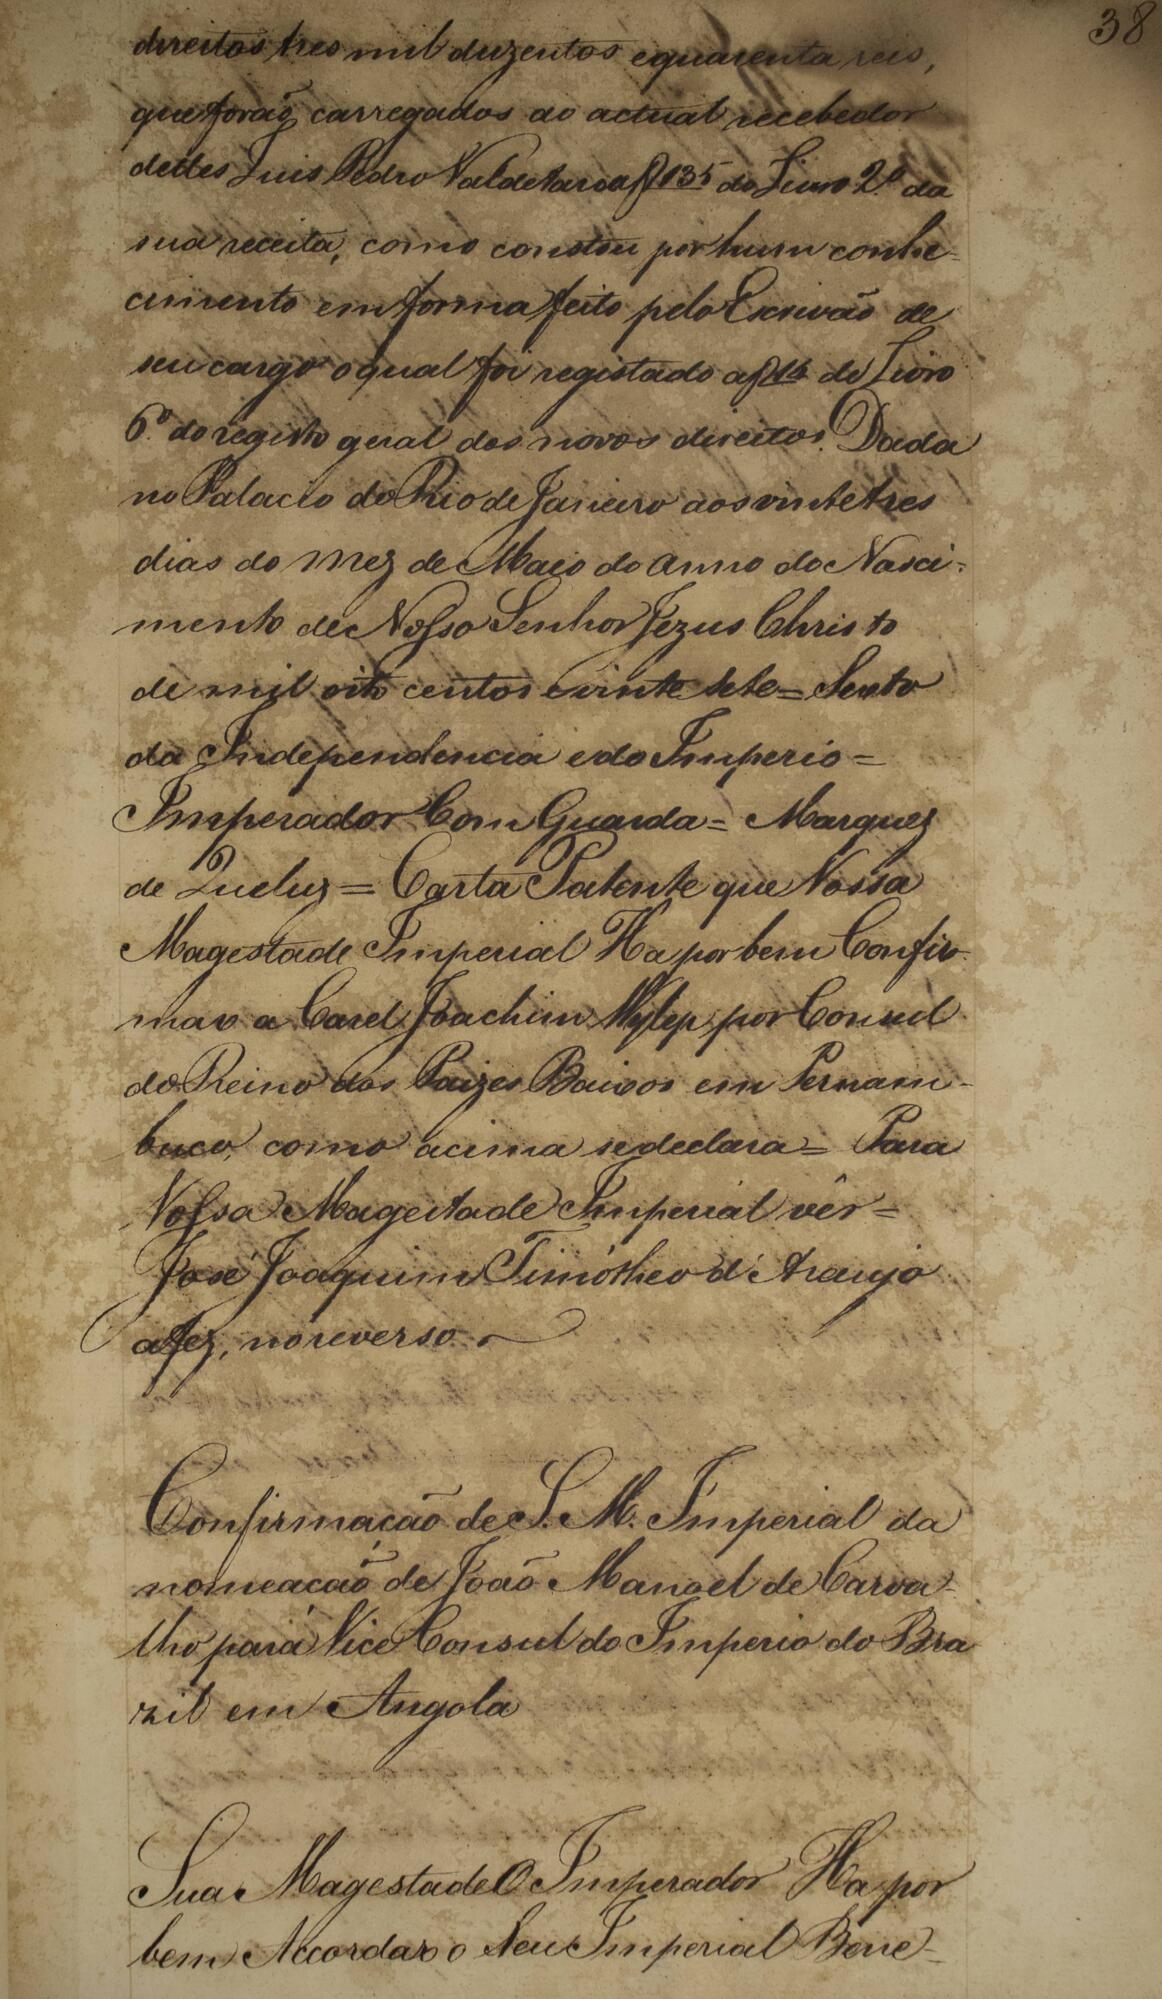 38
direitos tres mil duzentos equarenta reis,
que forão carregados ao actual recebedor
dettes Luis Pedro Valdetaro af 135 do Livro 2º da
sua receita, como constou por hum conhe-
cimento em forma feito pelo Escrivão de
seu cargo o qual foi registado af 15 do Livro
6º do registo geral dos novos direitos. Dada
no Palacio do Rio de Janeiro aos vinte tres
dias do mez de Maio do anno do Nasci-
mento de Nosso Senhor Jezus Christo
de mil oito centos e vinte sete = Sexto
da Independencia e do Imperio =
Imperador Com Guarda = Marquez
de Queluz = Carta Patente que Vossa
Magestade Imperial Ha por bem Confir-
mar a Carel Joachim por Consul
do Reino dos Paizes Baixos em Pernam-
buco, como acima se declara = Para
Vossa Magestade Imperial vêr =
José Joaquim Timótheo d'Araujo
a fez, no reverso.
Confirmação de S. M. Imperial da
nomeacaõ de João Manoel de Carva-
lho para Vice Consul do Imperio do Bra
zil em Angola
Sua Magestade O Imperador Ha por
bem Accordar o Seu Imperial Bene-